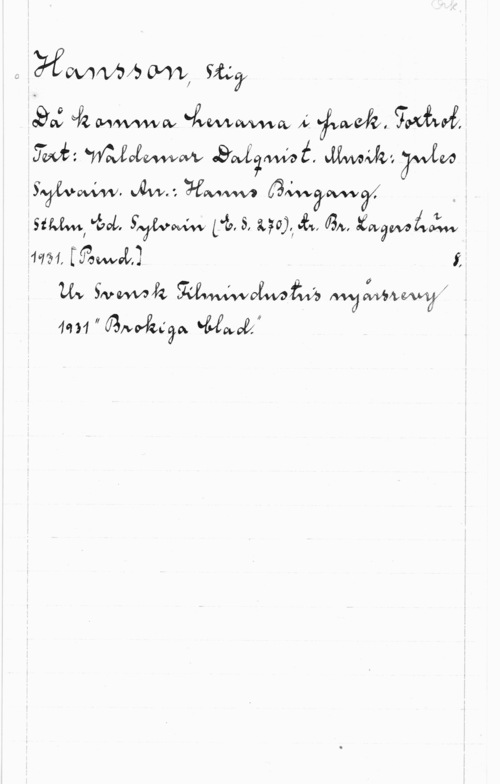 Ork.
Hansson, Stig
Då komma herrarna i frack. Foxtrot.
Text: Waldemar Dalqvist. Musik: Jules
Sylvain. Arr.: Hanns Bingang.
Sthlm, Ed. Sylvain (E. S. 270); tr. Br. Lagerström
1931. [Pseud.] 8.
Ur Svensk Filmindustris nyårsrevy
1931 "Brokiga blad."